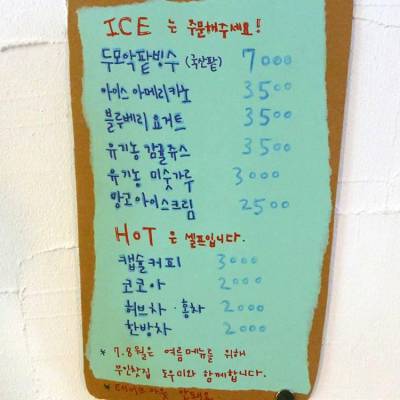 ICE 는 주문해주세요!
두모악팥빙수 (국산팥) 7000
아이스 아메리카노 3500
블루베리 요거트 3500
유기농 감귤쥬스 3500
유기농 미숫가루 3000
망고아이스크림 2500
HOT 은 셀프입니다.
캡슐커피 3000
코코아 2000
허브차 · 홍차 2000
한방차 2000
* 7.8월은 여름메뉴를 위해
무인찻집 도우미와 함께합니다.
* 테이크아웃 안돼요